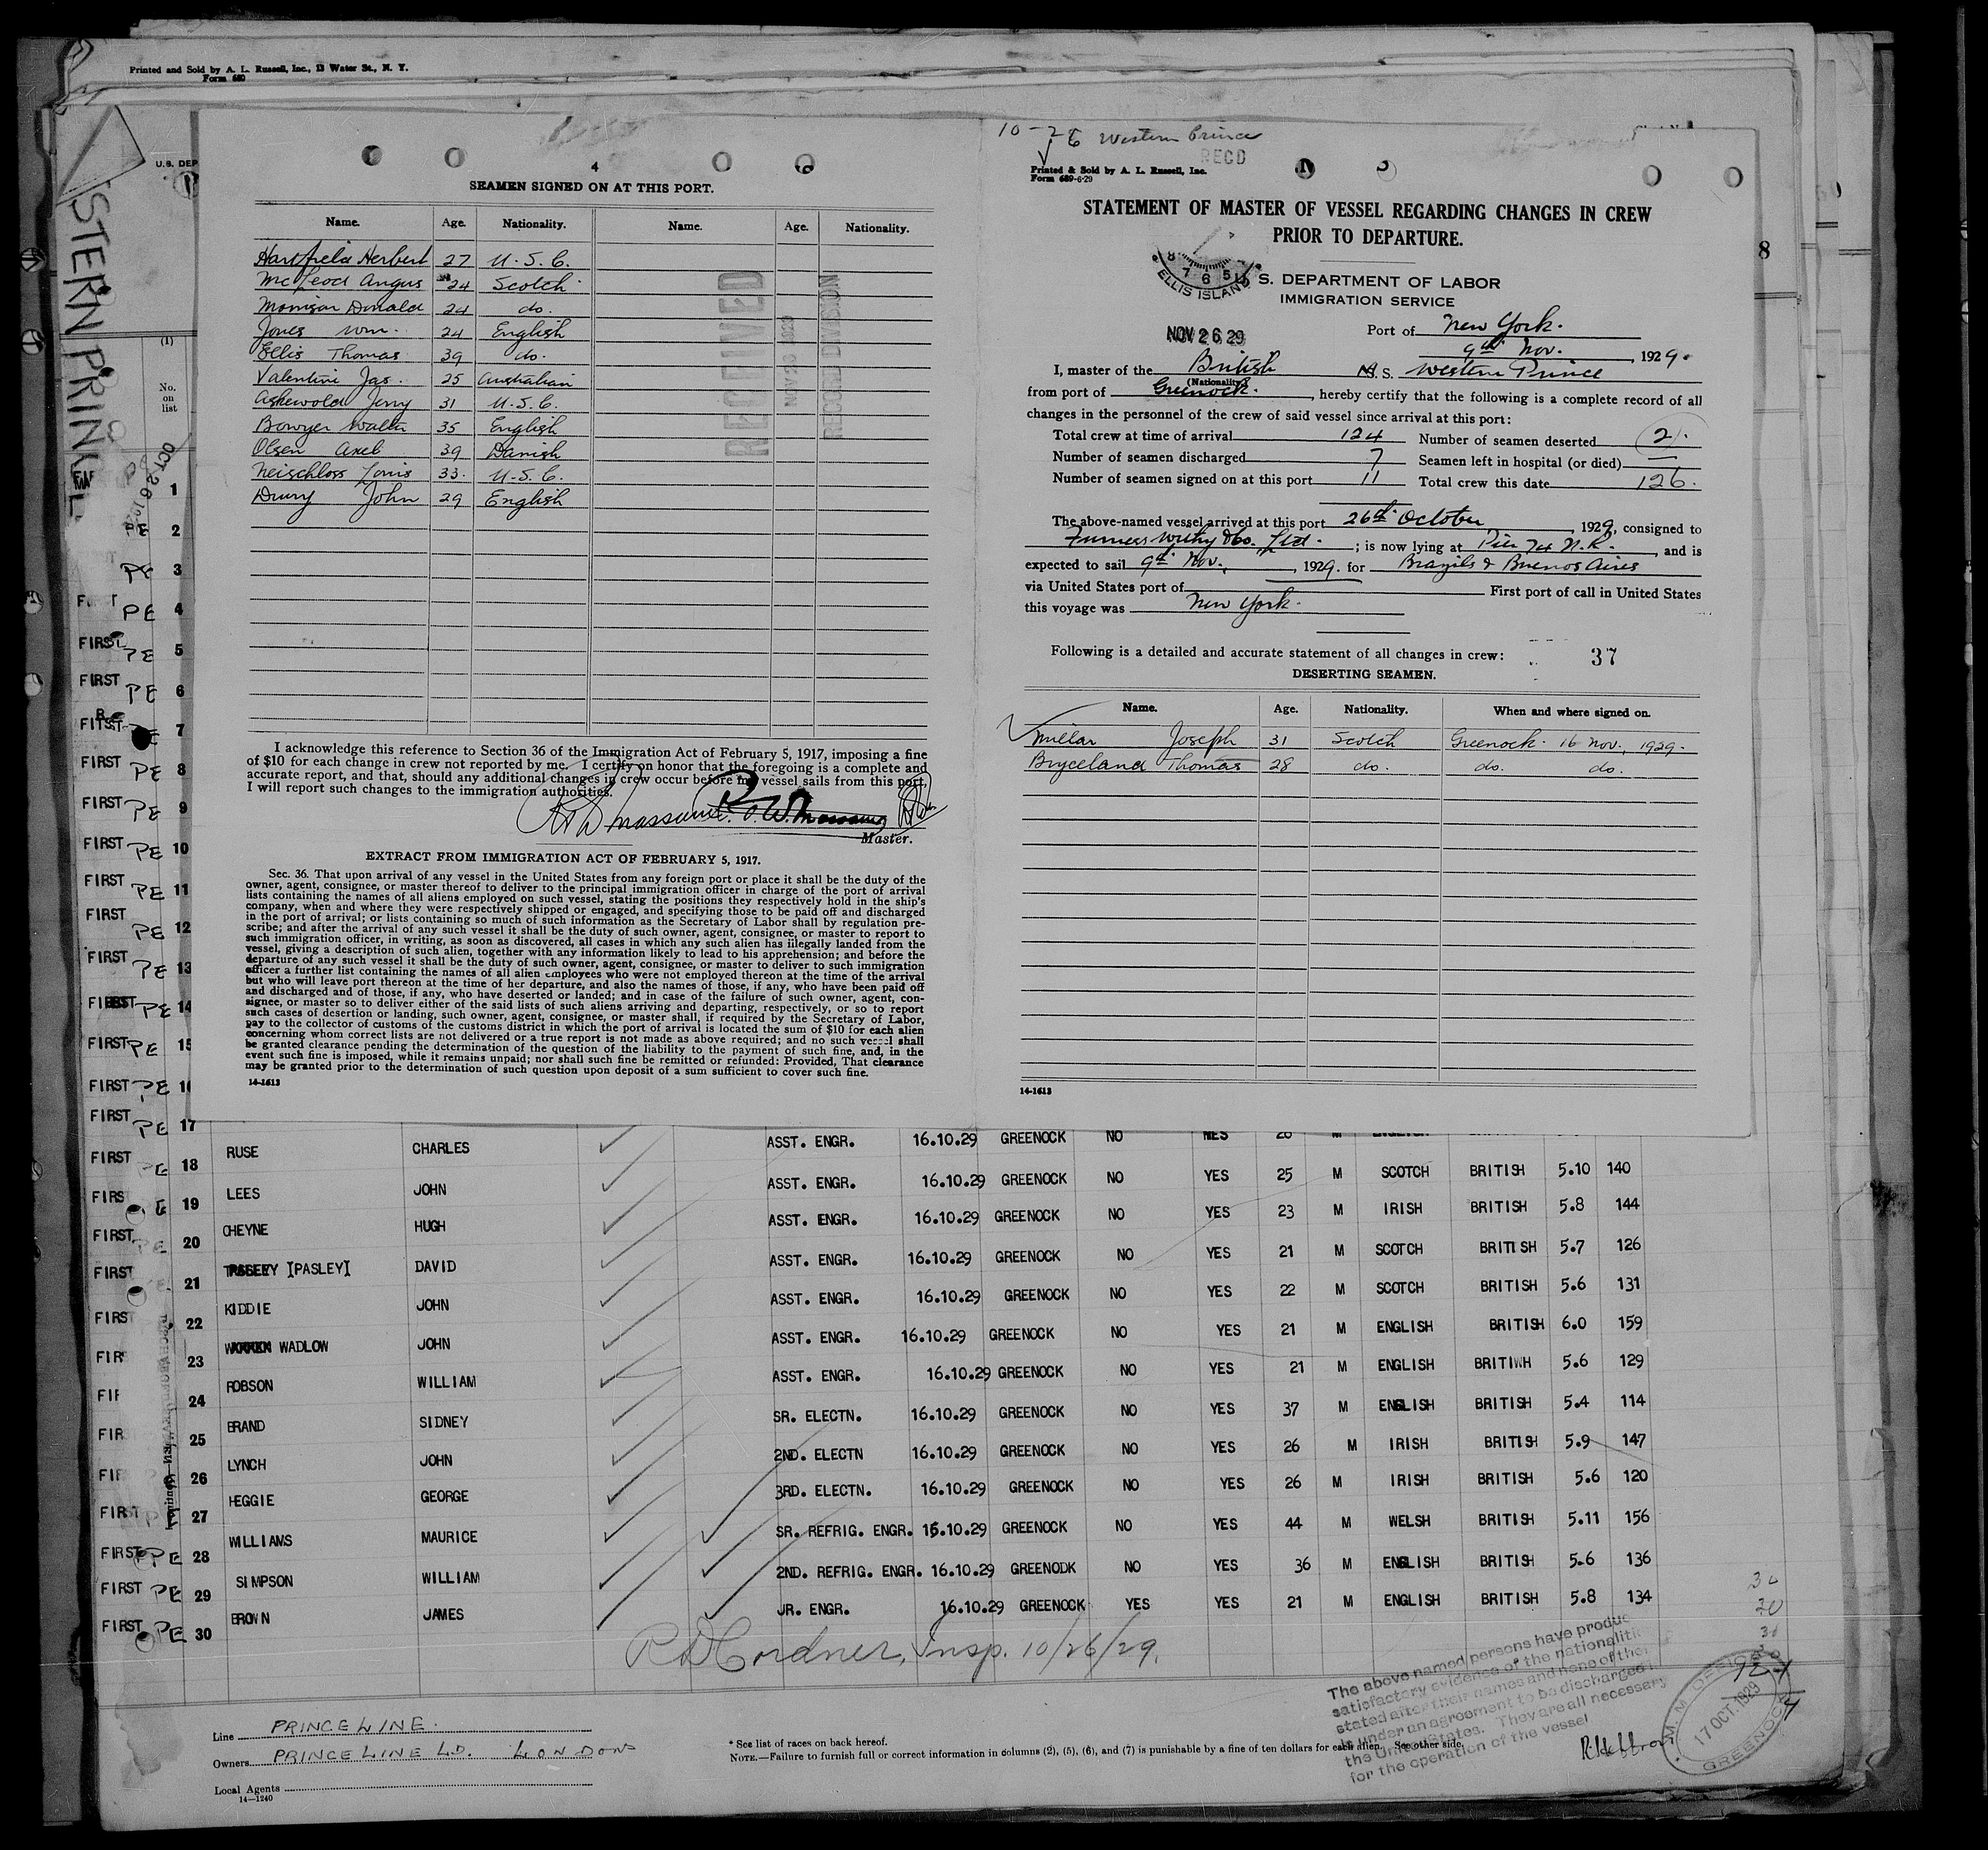 Printed and Sold by A. L. Russell, Inc., 13 Water St., N. Y.
Form 680
STERN PRIN
U.S. DEP
(1)
No.
on
list
4
SEAMEN SIGNED ON AT THIS PORT.
Name. Age. Nationality. Name. Age. Nationality.
Hartfield Herbert 27 U.S.C.
McLeod Angus 24 Scotch
Morrison Donald 24 do.
Jones Wm. 24 English
Ellis Thomas 39 do.
Valentini Jas. 25 Australian
Askewold Jerry 31 U.S.C.
Bowyer Walter 35 English
Olsen Axel 39 Danish
Neischloss Louis 33. U.S.C.
Drury John 29 English
RECEIVED
RECORD DIVISION
I acknowledge this reference to Section 36 of the Immigration Act of February 5, 1917, imposing a fine
of $10 for each change in crew not reported by me. I certify on honor that the foregoing is a complete and
accurate report, and that, should any additional changes in crew occur before my vessel sails from this port,
I will report such changes to the immigration authorities.
Master.
EXTRACT FROM IMMIGRATION ACT OF FEBRUARY 5, 1917.
Sec. 36. That upon arrival of any vessel in the United States from any foreign port or place it shall be the duty of the
owner, agent, consignee, or master thereof to deliver to the principal immigration officer in charge of the port of arrival
lists containing the names of all aliens employed on such vessel, stating the positions they respectively hold in the ship's
company, when and where they were respectively shipped or engaged, and specifying those to be paid off and discharged
in the port of arrival; or lists containing so much of such information as the Secretary of Labor shall by regulation pre-
scribe; and after the arrival of any such vessel it shall be the duty of such owner, agent, consignee, or master to report to
such immigration officer, in writing, as soon as discovered, all cases in which any such alien has illegally landed from the
vessel, giving a description of such alien, together with any information likely to lead to his apprehension; and before the
departure of any such vessel it shall be the duty of such owner, agent, consignee, or master to deliver to such immigration
officer a further list containing the names of all alien employees who were not employed thereon at the time of the arrival
but who will leave port thereon at the time of her departure, and also the names of those, if any, who have been paid off
and discharged and of those, if any, who have deserted or landed; and in case of the failure of such owner, agent, con-
signee, or master so to deliver either of the said lists of such aliens arriving and departing, respectively, or so to report
such cases of desertion or landing, such owner, agent, consignee, or master shall, if required by the Secretary of Labor,
pay to the collector of customs of the customs district in which the port of arrival is located the sum of $10 for each alien
concerning whom correct lists are not delivered or a true report is not made as above required; and no such vessel shall
be granted clearance pending the determination of the question of the liability to the payment of such fine, and, in the
event such fine is imposed, while it remains unpaid; nor shall such fine be remitted or refunded: Provided, That clearance
may be granted prior to the determination of such question upon deposit of a sum sufficient to cover such fine.
14-1613
10-26 Western Prince
RECD
Printed & Sold by A. L. Russell, Inc.
Form 689-6-29
STATEMENT OF MASTER OF VESSEL REGARDING CHANGES IN CREW
PRIOR TO DEPARTURE.
8
8 7 6 5
ELLIS ISLAND
S. DEPARTMENT OF LABOR
IMMIGRATION SERVICE
NOV 26 29
Port of New York.
9th Nov. , 1929.
I, master of the British M.S. Western Prince
(Nationality)
from port of Greenock. , hereby certify that the following is a complete record of all
changes in the personnel of the crew of said vessel since arrival at this port:
Total crew at time of arrival 124 Number of seamen deserted 2.
Number of seamen discharged 7 Seamen left in hospital (or died) —
Number of seamen signed on at this port 11 Total crew this date 126.
The above-named vessel arrived at this port 26th October , 1929, consigned to
Furness Withy & Co. Ltd. ; is now lying at Pier 74 N.R. , and is
expected to sail 9th Nov. , 1929. for Brazils & Buenos Aires
via United States port of First port of call in United States
this voyage was New York.
Following is a detailed and accurate statement of all changes in crew: 37
DESERTING SEAMEN.
Name. Age. Nationality. When and where signed on.
Millar Joseph 31 Scotch Greenock. 16 Nov., 1929.
Bryceland Thomas 28 do. do. do.
14-1613
OCT 26 1929
1
PE 2
PE 3
PE 4
FIRST PE 5
FIRST PE 6
FIRST 7
FIRST PE 8
FIRST PE 9
FIRST PE 10
FIRST PE 11
FIRST PE 12
FIRST PE 13
FIRST PE 14
FIRST PE 15
FIRST PE 16
FIRST PE 17
FIRST PE 18 RUSE CHARLES ASST. ENGR. 16.10.29 GREENOCK NO
FIRST 19 LEES JOHN ASST. ENGR. 16.10.29 GREENOCK NO YES 25 M SCOTCH BRITISH 5.10 140
FIRST 20 CHEYNE HUGH ASST. ENGR. 16.10.29 GREENOCK NO YES 23 M IRISH BRITISH 5.8 144
FIRST 21 [PASLEY] DAVID ASST. ENGR. 16.10.29 GREENOCK NO YES 21 M SCOTCH BRITISH 5.7 126
FIRST 22 KIDDIE JOHN ASST. ENGR. 16.10.29 GREENOCK NO YES 22 M SCOTCH BRITISH 5.6 131
FIR 23 WADLOW JOHN ASST. ENGR. 16.10.29 GREENOCK NO YES 21 M ENGLISH BRITISH 6.0 159
FIR 24 ROBSON WILLIAM ASST. ENGR. 16.10.29 GREENOCK NO YES 21 M ENGLISH BRITIWH 5.6 129
FIR 25 BRAND SIDNEY SR. ELECTN. 16.10.29 GREENOCK NO YES 37 M ENGLISH BRITISH 5.4 114
FIR 26 LYNCH JOHN 2ND. ELECTN 16.10.29 GREENOCK NO YES 26 M IRISH BRITISH 5.9 147
FIRST 27 HEGGIE GEORGE 3RD. ELECTN. 16.10.29 GREENOCK NO YES 26 M IRISH BRITISH 5.6 120
FIRST PE 28 WILLIAMS MAURICE SR. REFRIG. ENGR. 16.10.29 GREENOCK NO YES 44 M WELSH BRITISH 5.11 156
FIRST PE 29 SIMPSON WILLIAM 2ND. REFRIG. ENGR. 16.10.29 GREENODK NO YES 36 M ENGLISH BRITISH 5.6 136
FIRST PE 30 BROWN JAMES JR. ENGR. 16.10.29 GREENOCK YES YES 21 M ENGLISH BRITISH 5.8 134
R D Cordner, Insp. 10/26/29.
30
30
The above named persons have produc
satisfactory evidence of the nationaliti
stated after their names and none of the
is under an agreement to be discharged i
the United States. They are all necessary
for the operation of the vessel
M. M. OFFICE
17 OCT. 1929
GREENOCK
Line PRINCE LINE.
Owners PRINCE LINE LD. LONDON
Local Agents
14-1240
* See list of races on back hereof.
NOTE.—Failure to furnish full or correct information in columns (2), (5), (6), and (7) is punishable by a fine of ten dollars for each alien. See other side.